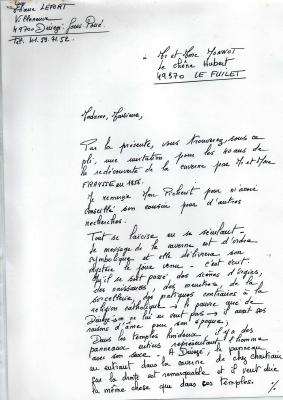 LEFORT
Villeneuve
49700 Denezé. Sous. Doué.
Tél. 41. 59. 71. 52.
à Mr et Mme MONNOT
Le chêne Hubert
49370 LE FUILET
Madame, Monsieur,
Par la présente, vous trouverez, sous ce
pli, une invitation pour les 40 ans de
la redécouverte de la caverne par Mr et Mme
FRAYSSE en 1956.
Je remercie Mme Richent pour m'avoir
conseillé son cousin pour d'autres
recherches.
Tout se laïcise en se
Le message de la caverne est d'ordre
symbolique et elle délivrera son
mystère le jour venu - c'est écrit.
Qu'il se soit passé des scènes d'orgies,
des naissances, des meurtres, de la
sorcellerie, des pratiques contraires à la
religion catholique → le pauvre curé de
Denezé on ne lui en veut pas → il avait ses
raisons d'âme pour son époque.
Dans les temples hindous, il y a des
panneaux entiers représentant l'homme
avec son sexe. A Denezé, le panneau
en entrant dans la caverne de chez
par la droite est remarquable et il veut dire
la même chose que dans ces temples.